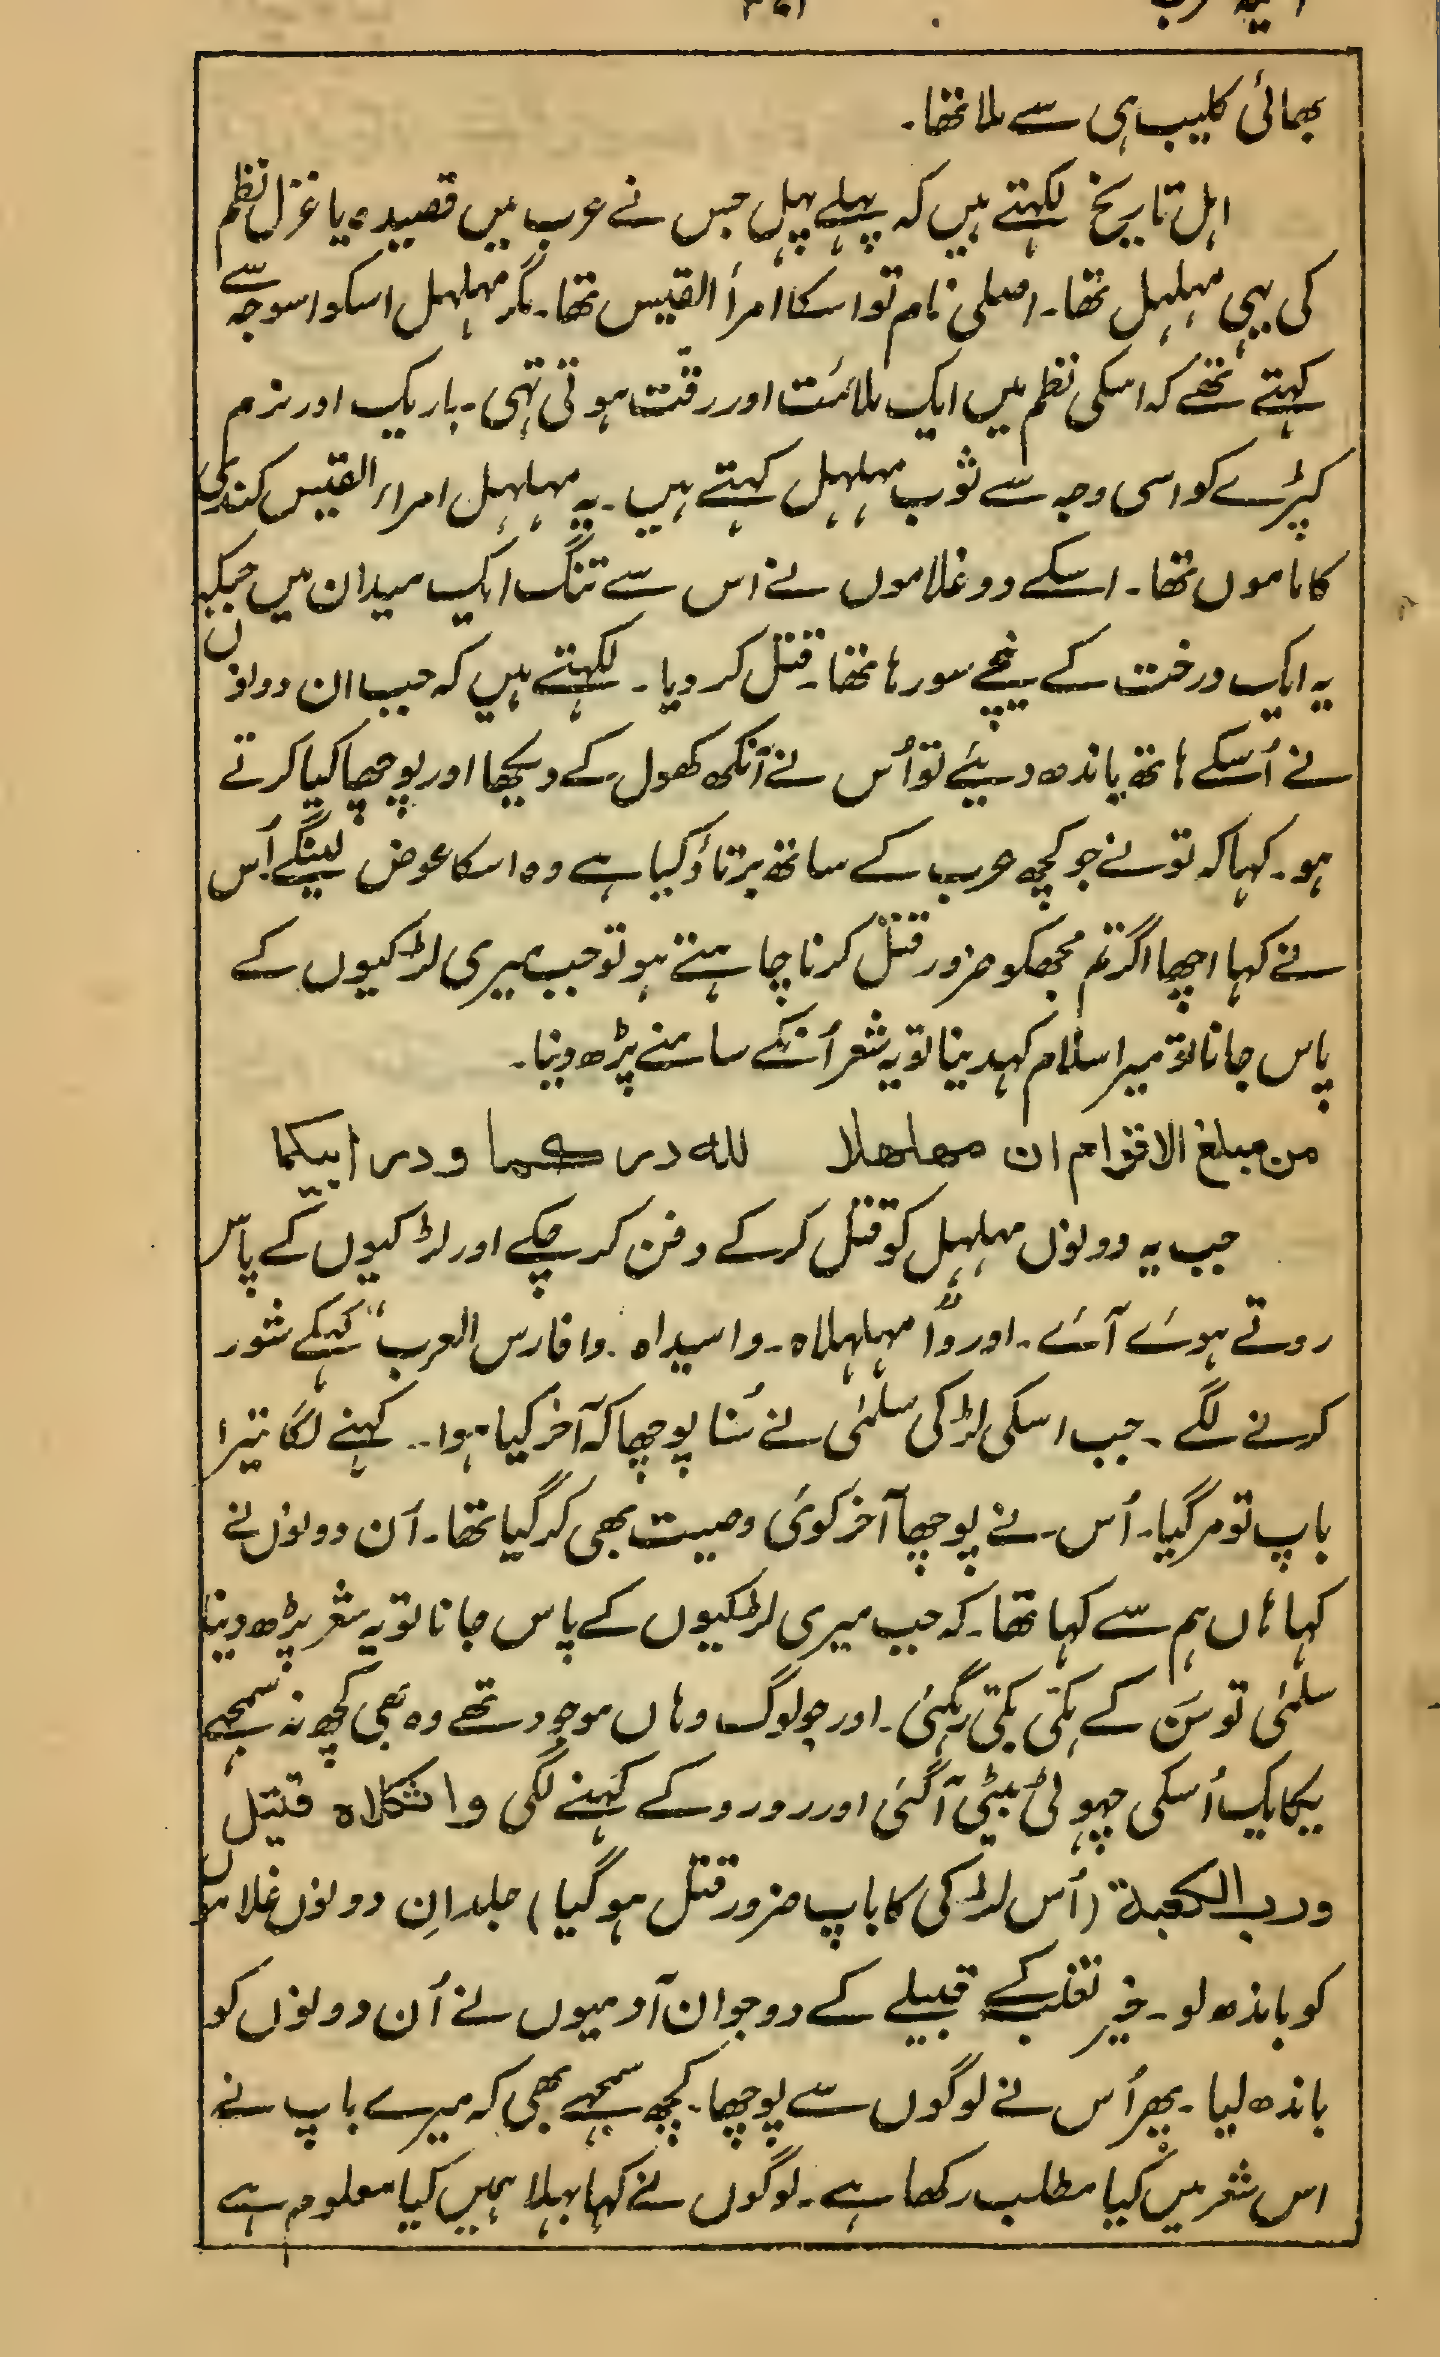 بھائی کلیب ہی سے ملا تھا۔
اہل تاریخ لکہتے ہیں کہ پہلے پہل جس نے عرب میں قصیدہ یا غزل نظم
کی یہی مہلہل تھا۔ اصلی نام تو اسکا امرأ القیس تھا۔ مگر مہلہل اسکو اسوجہ سے
کہتے تھے کہ اسکی نظم میں ایک ملائمت اور رقّت ہوتی تہی۔ باریک اور نرم
کپڑے کو اسی وجہ سے ثوب مہلہل کہتے ہیں۔ یہ مہلہل امراء القیس کندی
کا ماموں تھا۔ اسکے دو غلاموں نے اس سے تنگ ایک میدان میں جبکہ
یہ ایک درخت کے نیچے سو رہا تھا۔ قتل کر دیا۔ لکہتے ہیں کہ جب ان دونوں
نے اُسکے ہاتھ باندھ دیئے تو اُس نے آنکھ کھول کے دیکھا اور پوچھا کیا کرتے
ہو۔ کہا کہ تو نے جو کچھ عرب کے ساتھ برتاؤ کیا ہے وہ اسکا عوض لینگے اُس
نے کہا اچھا اگر تم مجھکو ضرور قتل کرنا چاہتے ہو تو جب میری لڑکیوں کے
پاس جانا تو میرا سلام کہدینا تو یہ شعر اُنکے سامنے پڑھ دینا۔
من مبلغ الاقوام ان مهلهلا لله دركما ودر ابيكما
جب یہ دونوں مہلہل کو قتل کر کے دفن کر چکے اور لڑکیوں کے پاس
روتے ہوئے آئے۔ اور ”وا مہلہلاہ۔ وا سیداہ۔ وا فارس العرب“ کہکے شور
کرنے لگے۔ جب اسکی لڑکی سلمٰی نے سُنا پوچھا کہ آخر کیا ہوا۔ کہنے لگا تیرا
باپ تو مر گیا۔ اُس نے پوچھا آخر کوئی وصیت بھی کر گیا تھا۔ اُن دونوں نے
کہا ہاں ہم سے کہا تھا۔ کہ جب میری لڑکیوں کے پاس جانا تو یہ شعر پڑھ دینا
سلمٰی تو سن کے ہکّی بکّی رہگئی۔ اور جو لوگ وہاں موجود تھے وہ بھی کچھ نہ سمجہے
یکایک اُسکی چہوٹی بیٹی آگئی اور رو رو کے کہنے لگی واثكلاه قتيل
ورب الكعبة (اُس لڑکی کا باپ ضرور قتل ہو گیا) جلد اِن دونوں غلاموں
کو باندھ لو۔ خیر تغلب کے قبیلے کے دو جوان آدمیوں نے اُن دونوں کو
باندھ لیا۔ پھر اُس نے لوگوں سے پوچھا۔ کچھ سمجہے بھی کہ میرے باپ نے
اس شعر میں کیا مطلب رکھا ہے۔ لوگوں نے کہا بہلا ہمیں کیا معلوم ہے